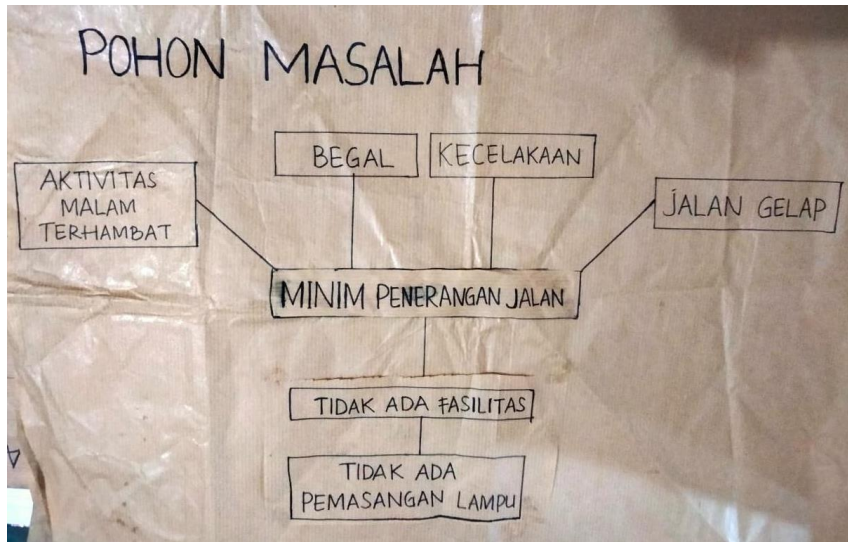 POHON MASALAH
AKTIVITAS
MALAM
TERHAMBAT
BEGAL
KECELAKAAN
JALAN GELAP
MINIM PENERANGAN JALAN
TIDAK ADA FASILITAS
TIDAK ADA
PEMASANGAN LAMPU